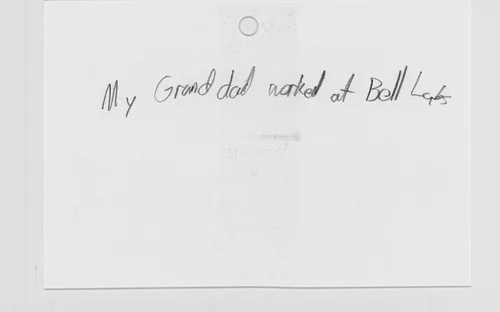 My Granddad worked at Bell Labs